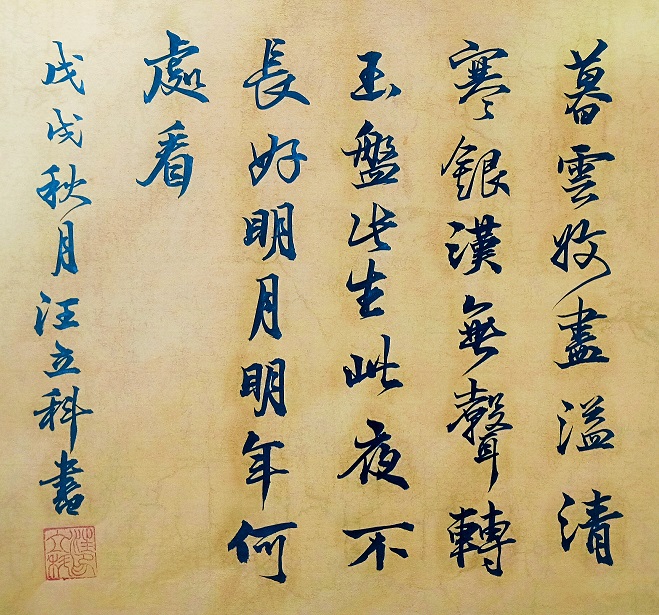 暮雲收盡溢清
寒銀漢無聲轉
玉盤此生此夜不
長好明月明年何
處看
戊戌秋月汪立科書